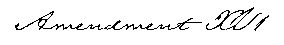 Amendment XVI